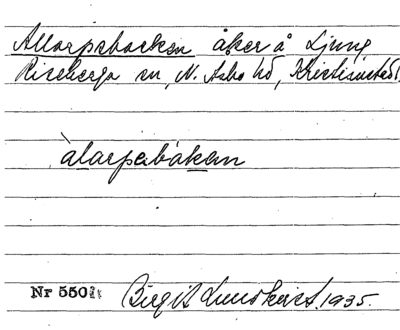 Allarpsbacken åker å Ljung
Riseberga sn, N. Åsbo hd, Kristianstads l.
àlarpsbákan
Nr 550
Birgit Lundkvist. 1935.